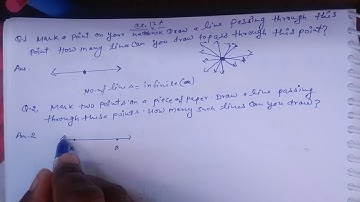 Ex. 12 A
Q1 Mark a point on your notebook. Draw a line passing through this
point. How many lines can you draw to pass through this point?
Ans
No. of lines = infinite (∞)
Q-2 Mark two points on a piece of paper. Draw a line passing
through these points. How many such lines can you draw?
Ans-2
A B